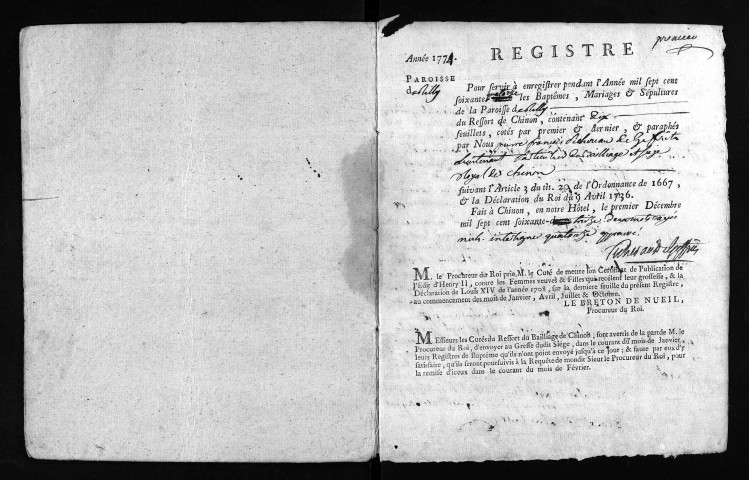 premier
Année 1774. REGISTRE
PAROISSE
de Rilly
Pour servir à enregistrer pendant l'Année mil sept cent
soixante quatorze les Baptêmes, Mariages & Sépultures
de la Paroisse de Rilly
du Ressort de Chinon, contenant dix
feuillets, cotés par premier & dernier, & paraphés
par Nous pierre françois
Lieutenant particulier du Bailliage et siege
Royal de chinon
suivant l'Article 3 du tit. 20 de l'Ordonnance de 1667,
& la Déclaration du Roi du 9 Avril 1736.
Fait à Chinon, en notre Hôtel, le premier Décembre
mil sept cent soixante- treize
interligne quatorze approuvé
M. le Procureur du Roi prie M. le Curé de mettre son Certificat de Publication de
l'Edit d'Henry II, contre les Femmes veuves & Filles qui recélent leur grossesse, & la
Déclaration de Louis XIV de l'année 1708, sur la derniere feuille du présent Registre,
au commencement des mois de Janvier, Avril, Juillet & Octobre.
LE BRETON DE NUEIL,
Procureur du Roi.
MEssieurs les Curés du Ressort du Bailliage de Chinon, sont avertis de la part de M. le
Procureur du Roi, d'envoyer au Greffe dudit Siége, dans le courant du mois de Janvier,
leurs Registres de Baptême qu'ils n'ont point envoyé jusqu'à ce jour; & faute par eux d'y
satisfaire, qu'ils seront poursuivis à la Requête de mondit Sieur le Procureur du Roi, pour
la remise d'iceux dans le courant du mois de Février.